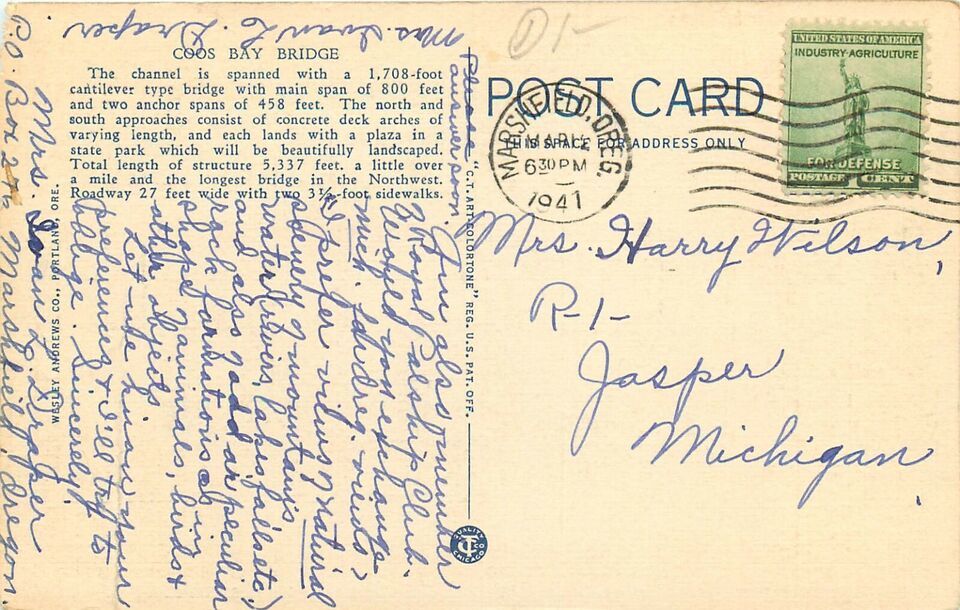 Mrs. Ivan L. Draper
D/-
COOS BAY BRIDGE
The channel is spanned with a 1,708-foot
cantilever type bridge with main span of 800 feet
and two anchor spans of 458 feet. The north and
south approaches consist of concrete deck arches of
varying length, and each lands with a plaza in a
state park which will be beautifully landscaped.
Total length of structure 5,337 feet. a little over
a mile and the longest bridge in the Northwest.
Roadway 27 feet wide with two 3½-foot sidewalks.
Please
answer soon.
I'm also member
Royal Palship Club.
Wished you exchange
much. Id. & Oreg. views
I prefer views of natural
scenery of mountains
(water, rivers, lakes, falls etc)
and also of odd or peculiar
rock formations as in
shape of animals, birds &
other objects
Let me know your
preferences & I'll try to
oblige. Sincerely,
Mrs. Ivan L. Draper
P.O. Box Marshfield, Oregon.
WESLEY ANDREWS CO., PORTLAND, ORE.
"C.T. ART-COLORTONE" REG. U.S. PAT. OFF.
QUALITY
CT CO
CHICAGO
POST CARD
THIS SPACE FOR ADDRESS ONLY
MARSHFIELD, OREG.
MAR
6 30 PM
1941
UNITED STATES OF AMERICA
INDUSTRY·AGRICULTURE
FOR DEFENSE
POSTAGE 1 CENT
Mrs. Harry Wilson,
R-1-
Jasper
Michigan